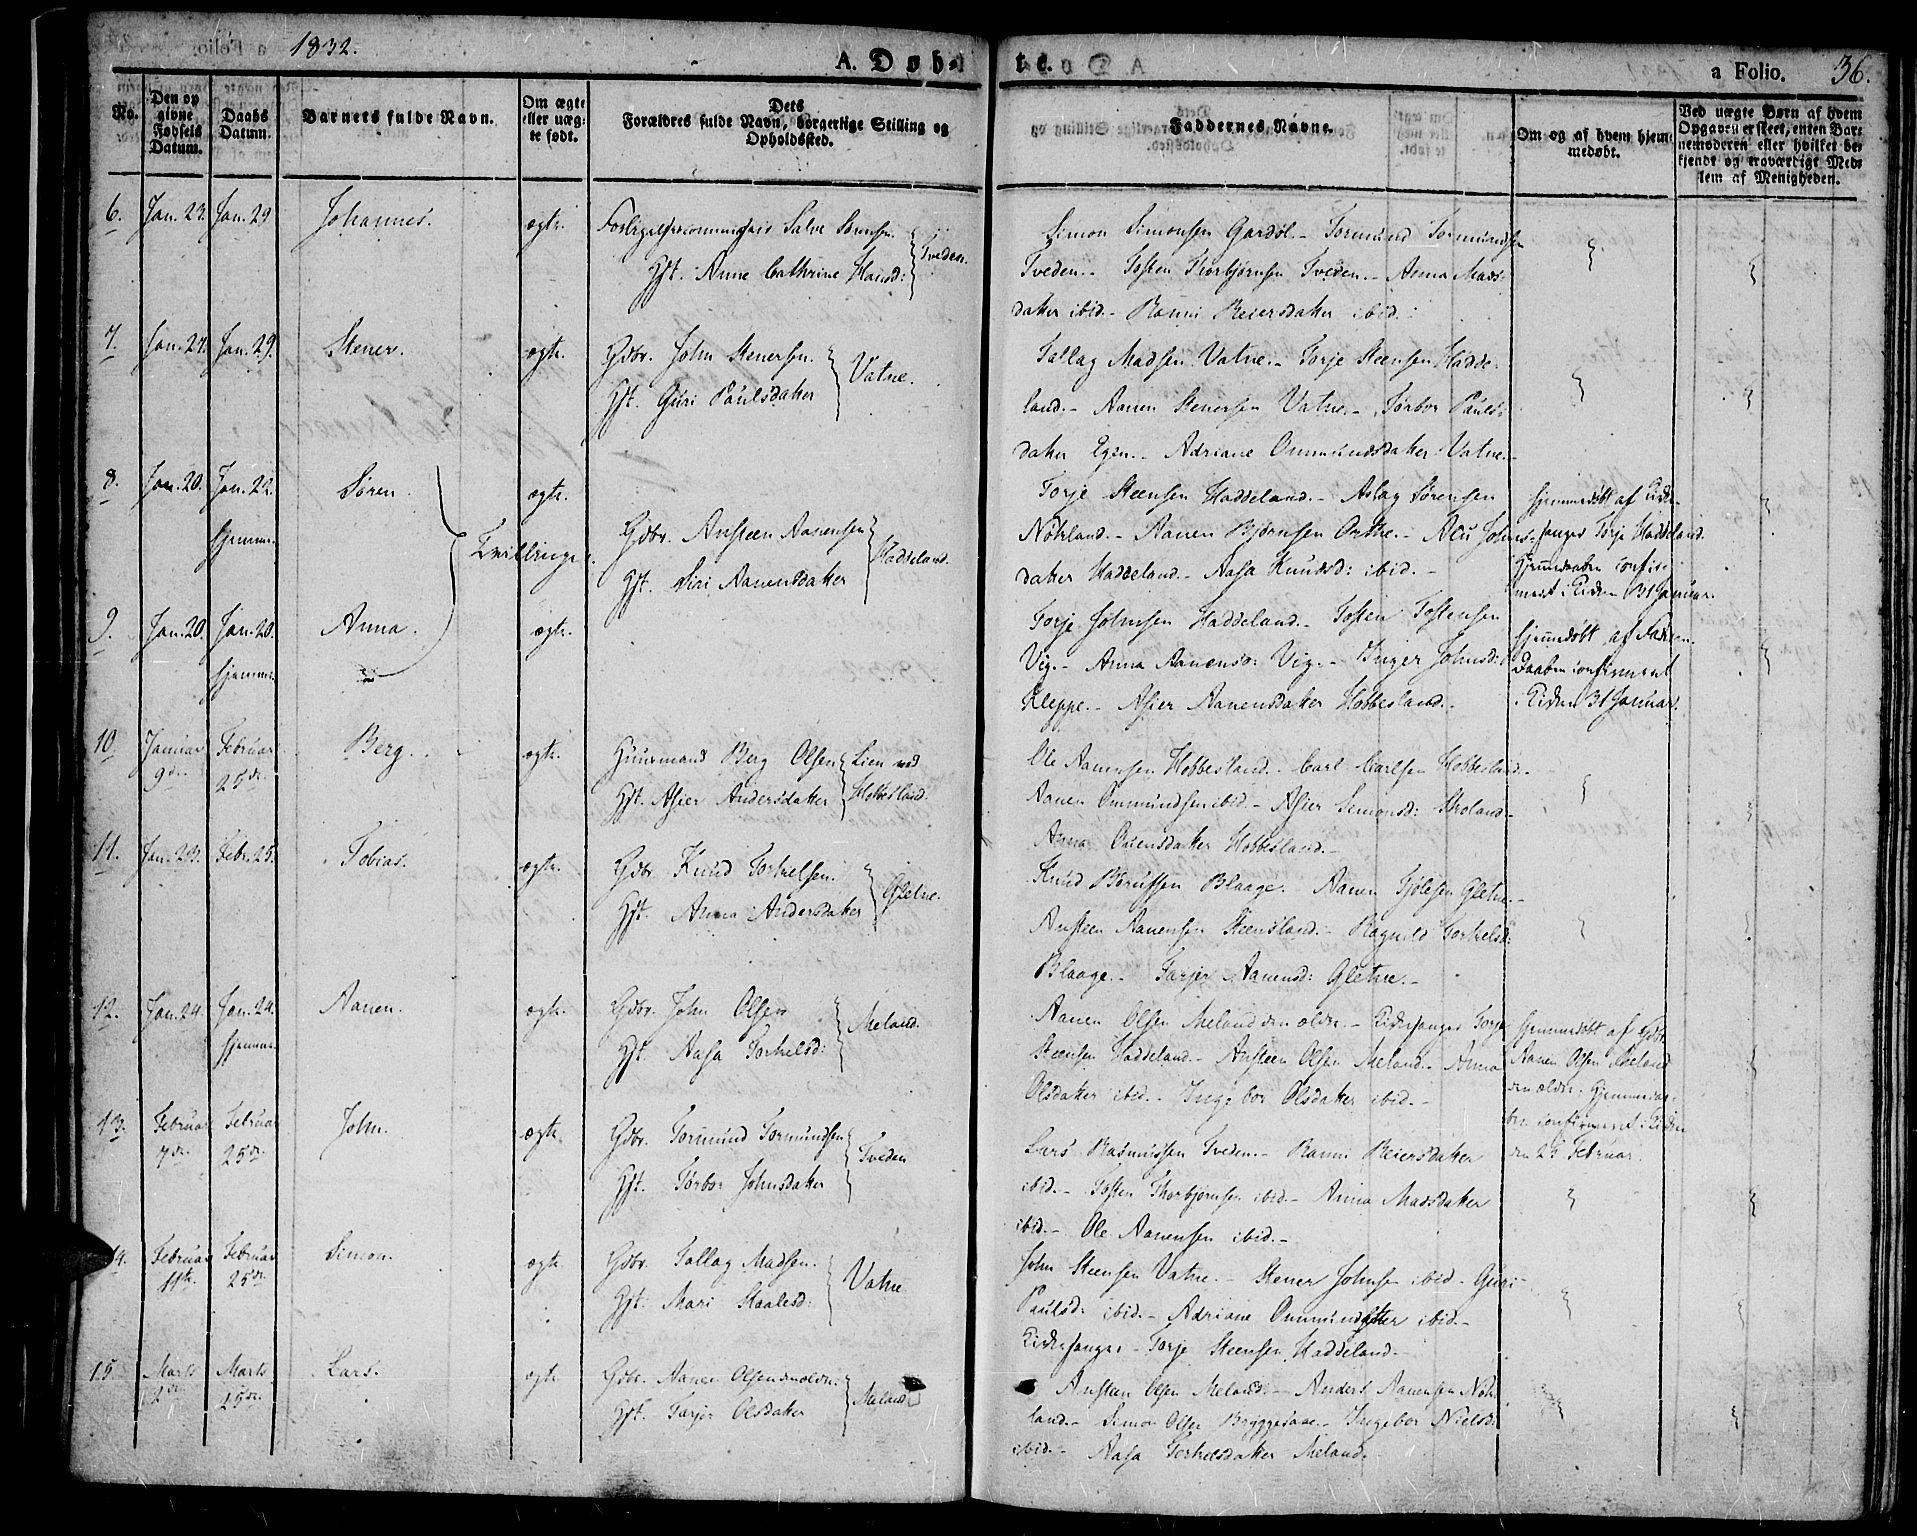 1832.
A. Døb-
te.
a Folio. 36.
No.
Den op
givne
Fødsels
Datum.
Daabs
Datum.
Barnets fulde Navn.
Om ægte
eller uæg-
te født.
Dets
Forældres fulde Navn, borgerlige Stilling og
Opholdssted.
Faddernes Navne.
Om og af hvem hjem-
medøbt.
Ved uægte Børn af hvem
Opgaven er skeet, enten Bar-
nemoderen eller hvilket be-
kjendt og troværdigt Med-
lem af Menigheden.
6. Jan. 23. Jan. 29 Johannes. ægte. Salve Sørensen.
Hst. Anne Cathrine Hansd: Tveden.
Simon Simonsen Gardøl. - Tormund Tormundsen
Tveden. - Tosten Thorbjørnsen Tveden. - Anna Mads-
datter ibid. - Ranni Reiersdatter ibid.
7. Jan. 24. Jan. 29. Stener. ægte. Gdbr. John Stenersen.
Hst. Guri Paulsdatter Vatne.
Tallag Madsen Vatne. - Torje Steensen Hadde-
land. - Aanen Stenersen Vatne. - Torbor Pauls-
datter Egen. - Adriane Ommundsdatter Vatne. -
8. Jan. 20. Jan. 22. Søren. ægte.
hjemme. Tvillinger. Gdbr. Ansteen Aanensen
Hst. Siri Aanensdatter Haddeland.
Torje Steensen Haddeland. - Aslag Sørensen
Nøhland. - Aanen Bjørnsen - Johns-
datter Haddeland. - Aasa Knudsd: ibid. -
Hjemmedøbt af Kirke-
sanger Torje Haddeland.
Hjemmedaaben confir-
meret i Kirken 31 Januar.
9. Jan. 20. Jan. 20. Anna. ægte.
hjemme.
Torje Johnsen Haddeland. - Tosten Tostensen
Vig. - Anna Aanensd: Vig. - Inger Johnsd:
Kleppe. - Asier Aanensdatter Hobbesland. -
Hjemmedøbt af Faderen.
Daaben confirmeret
i Kirken 31 Januar.
10. Januar Februar Berg. ægte. Huusmand Berg Olsen Lien ved
9de 25de. Hst. Asier Andersdatter Hobbesland.
Ole Aanensen Hobbesland. - Carl Carlsen Hobbesland. -
Aanen Ommundsen ibid. - Asier Simonsd: Stroland. -
Anna Hobbesland. -
11. Jan. 23. Febr. 25. Tobias. ægte. Gdbr. Knud Torkelsen.
Hst. Anna Andersdatter Gletne.
Knud Blaage. - Aanen Gletne. -
Ansteen Aanensen Steensland. - Ragnild Torkelsd:
Blaage. - Tarjer Aanensd: Gletne. -
12. Jan. 24. Jan. 24. Aanen. ægte. Gdbr. John Olsen
hjemme. Hst. Aasa Torkelsd: Meland.
Aanen Olsen Meland den ældre. - Kirkesanger Torje
Steensen Haddeland. - Ansteen Olsen Meland. - Anna
Olsdatter ibid. - Ingebor Olsdatter ibid. -
Hjemmedøbt af Gdbr.
Aanen Olsen Meland
den ældre. Hjemmedaa-
ben confirmeret i Kirken
den 25 Februar.
13. Februar Februar John. ægte. Gdbr. Tormund Tormundsen
7de 25de. Hst. Torbor Johnsdatter Tveden
Lars Rasmussen Tveden. - Ranni Reiersdatter
ibid. - Tosten Thorbjørnsen ibid. - Anna Madsdatter
ibid. - Ole Aanensen ibid. -
14. Februar Februar Simon. ægte. Gdbr. Tallag Madsen.
11te. 25de. Hst. Mari Staalesd: Vatne
John Steensen Vatne. - Stener Johnsen ibid. - Guri
Paulsd: ibid. - Adriane Ommundsdatter ibid. -
Kirkesanger - Torje Steensen Haddeland. -
15. Marts Marts Lars. ægte Gdbr. Aanen Olsen den ældre.
2de 25de. Hst. Tarjer Olsdatter Meland
Ansteen Olsen Meland. - Anders Aanensen Nøh-
land. - Simon Olsen Bryggesaae. - Ingebor Nielsd:
ibid. - Aasa Torkelsdatter Meland.